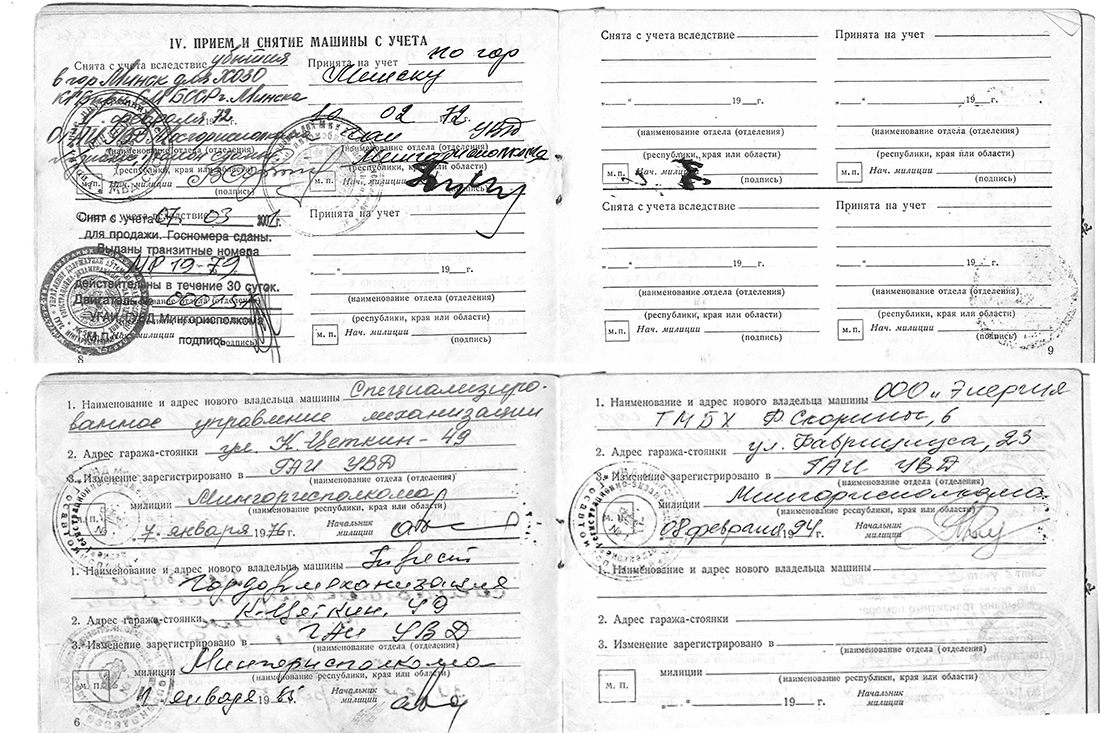 IV. ПРИЕМ И СНЯТИЕ МАШИНЫ С УЧЕТА
Снята с учета вследствие убытия
в гор Минск для ХОЗО
г. Минска
февраля 72
(наименование отдела (отделения)
(республики, края или области)
м. п. Нач. милиции
(подпись)
Принята на учет по гор
Минску
10 02 1972 г.
ГАИ УВД
(наименование отдела (отделения)
Мингорисполкома
(республики, края или области)
м. п. Нач. милиции
(подпись)
Снят с учета 07. 03 2001г.
для продажи. Госномера сданы.
Выданы транзитные номера
МР 19-79
действительны в течение 30 суток.
Двигатель №
УГАИ ГУВД Мингорисполкома
М.П. подпись
8
Принята на учет
„ “ 19 г.
(наименование отдела (отделения)
(республики, края или области)
м. п. Нач. милиции
(подпись)
Снята с учета вследствие
„ “ 19 г.
(наименование отдела (отделения)
(республики, края или области)
м. п. Нач. милиции
(подпись)
Принята на учет
„ “ 19 г.
(наименование отдела (отделения)
(республики, края или области)
м. п. Нач. милиции
(подпись)
Снята с учета вследствие
„ “ 19 г.
(наименование отдела (отделения)
(республики, края или области)
м. п. Нач. милиции
(подпись)
Принята на учет
„ “ 19 г.
(наименование отдела (отделения)
(республики, края или области)
м. п. Нач. милиции
(подпись)
9
1. Наименование и адрес нового владельца машины Специализиро-
ванное управление механизации
2. Адрес гаража-стоянки ул. К. Цеткин - 49
3. Изменение зарегистрировано в ГАИ УВД
(наименование отдела (отделения)
Мингорисполкома
милиции
(наименование республики, края или области)
м. п. 7 января 1976 г. Начальник
милиции
1. Наименование и адрес нового владельца машины Трест
Гордормеханизация
К. Цеткин
2. Адрес гаража-стоянки
3. Изменение зарегистрировано в ГАИ УВД
(наименование отдела (отделения)
милиции Мингорисполкома
(наименование республики, края или области)
м. п. января 19 г. Начальник
милиции
6
1. Наименование и адрес нового владельца машины ООО „Энергия
ТМБХ Ф. Скорины, 6
2. Адрес гаража-стоянки ул. Фабрициуса, 23
3. Изменение зарегистрировано в ГАИ УВД
(наименование отдела (отделения)
милиции Мингорисполкома
(наименование республики, края или области)
м. п. 08 февраля 1994 г. Начальник
милиции
1. Наименование и адрес нового владельца машины
2. Адрес гаража-стоянки
3. Изменение зарегистрировано в
(наименование отдела (отделения)
милиции
(наименование республики, края или области)
м. п. „ “ 19 г. Начальник
милиции